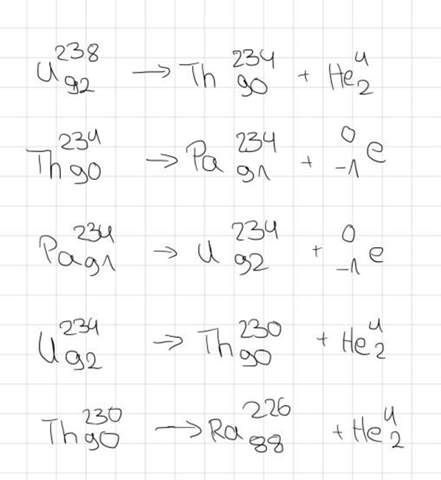 U ²³⁸₉₂ → Th ²³⁴₉₀ + He ⁴₂
Th ²³⁴₉₀ → Pa ²³⁴₉₁ + ⁰₋₁ e
Pa ²³⁴₉₁ → U ²³⁴₉₂ + ⁰₋₁ e
U ²³⁴₉₂ → Th ²³⁰₉₀ + He ⁴₂
Th ²³⁰₉₀ → Ra ²²⁶₈₈ + He ⁴₂